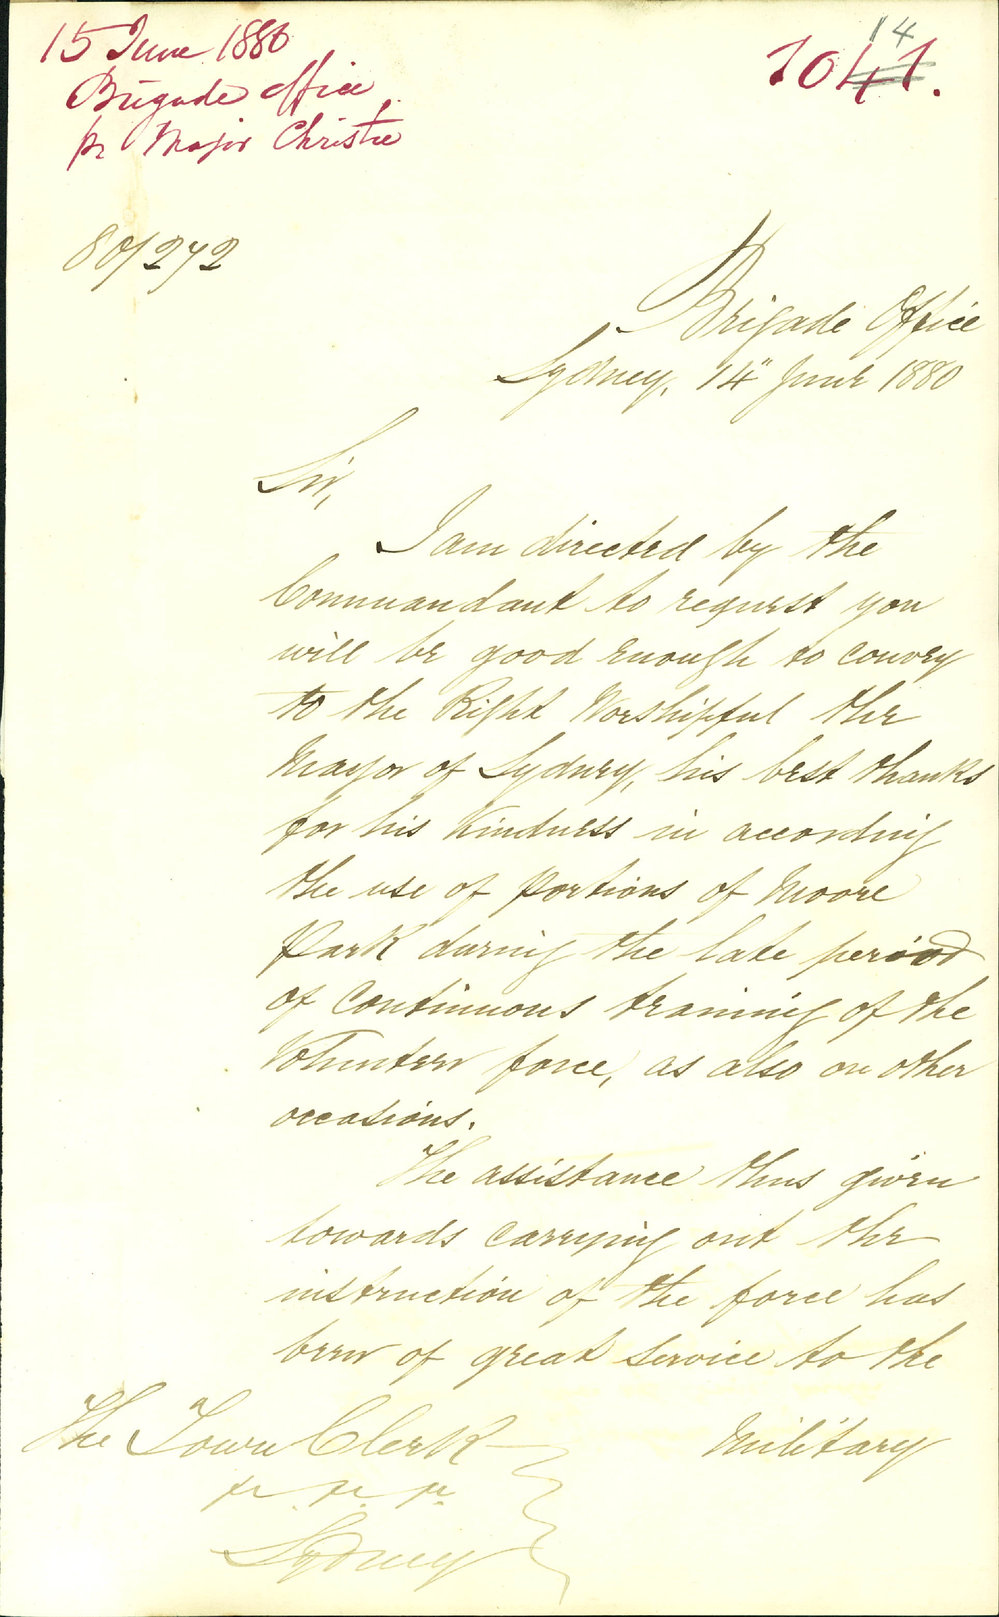 15 June 1880
Brigade Office
pr Major Christie
14
1041.
80/272
Brigade Office
Sydney, 14" June 1880
Sir,
I am directed by the
Commandant to request you
will be good enough to convey
to the Right Worshipful the
Mayor of Sydney, his best thanks
for his kindness in according
the use of portions of Moore
Park during the late period
of continuous training of the
Volunteer force, as also on other
occasions.
The assistance thus given
towards carrying out the
instruction of the force has
been of great service to the
Military
The Town Clerk
Sydney